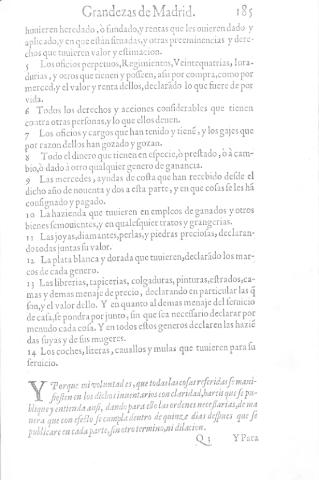 Grandezas de Madrid. 185
huuieren heredado, ò fundado, y rentas que les huuieren dado y
aplicado, y en que están situadas, y otras preeminencias y dere-
chos que tuuieren valor y estimacion.
5 Los oficios perpetuos, Regimientos, Veintequatrias, Iura-
durias, y otros que tienen y posseen, assi por compra, como por
merced, y el valor y renta dellos, declarãdo lo que fuere de por
vida.
6 Todos los derechos y acciones considerables que tienen
contra otras personas, y lo que ellos deuen.
7 Los oficios y cargos que han tenido y tienẽ, y los gajes que
por razon dellos han gozado y gozan.
8 Todo el dinero que tienen en especie, ò prestado, ò à cam-
bio, ò dado à otro qualquier genero de ganancia.
9 Las mercedes, ayudas de costa que han recebido desde el
dicho año de nouenta y dos a esta parte, y en que cosas se les hã
consignado y pagado.
10 La hazienda que tuuieren en empleos de ganados y otros
bienes semouientes, y en qualesquier tratos y grangerias.
11 Las joyas, diamantes, perlas, y piedras preciosas, declaran-
do todas juntas su valor.
12 La plata blanca y dorada que tuuieren, declarãdo los mar-
cos de cada genero.
13 Las librerias, tapicerias, colgaduras, pinturas, estrados, ca-
mas y demas menaje de precio, declarando en particular las q̃
son, y el valor dello. Y en quanto al demas menaje del seruicio
de casa, se pondra por junto, sin que sea necessario declarar por
menudo cada cosa. Y en todos estos generos declaren las haziẽ
das suyas y de sus mugeres.
14 Los coches, literas, cauallos y mulas que tuuieren para su
seruicio.
Y Porque mi voluntad es, que todas las cosas referidas se mani-
fiesten en los dichos inuentarios con claridad, hareis que se pu-
blique y entienda ansi, dando para ello las ordenes necessarias, de ma
nera que con efeto se cumpla dentro de quinze dias despues que se
publicare en cada parte, sin otro termino, ni dilacion.
Q 3 Y Para